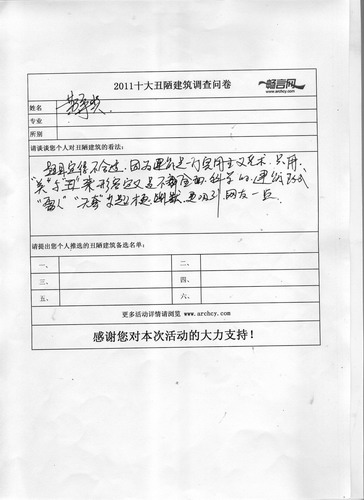 2011十大丑陋建筑调查问卷
畅言网
www.archcy.com
姓名
专业
所别
请谈谈您个人对丑陋建筑的看法:
题目定得不合适,因为建筑是一门实用主义艺术,只用
"美"与"丑"来形容定义是不够全面科学的,建议改成
"雷人" 幽默,更吸引网友一点。
请提出您个人推选的丑陋建筑备选名单:
一、 二、
三、 四、
五、 六、
更多活动详情请浏览 www.archcy.com
感谢您对本次活动的大力支持!